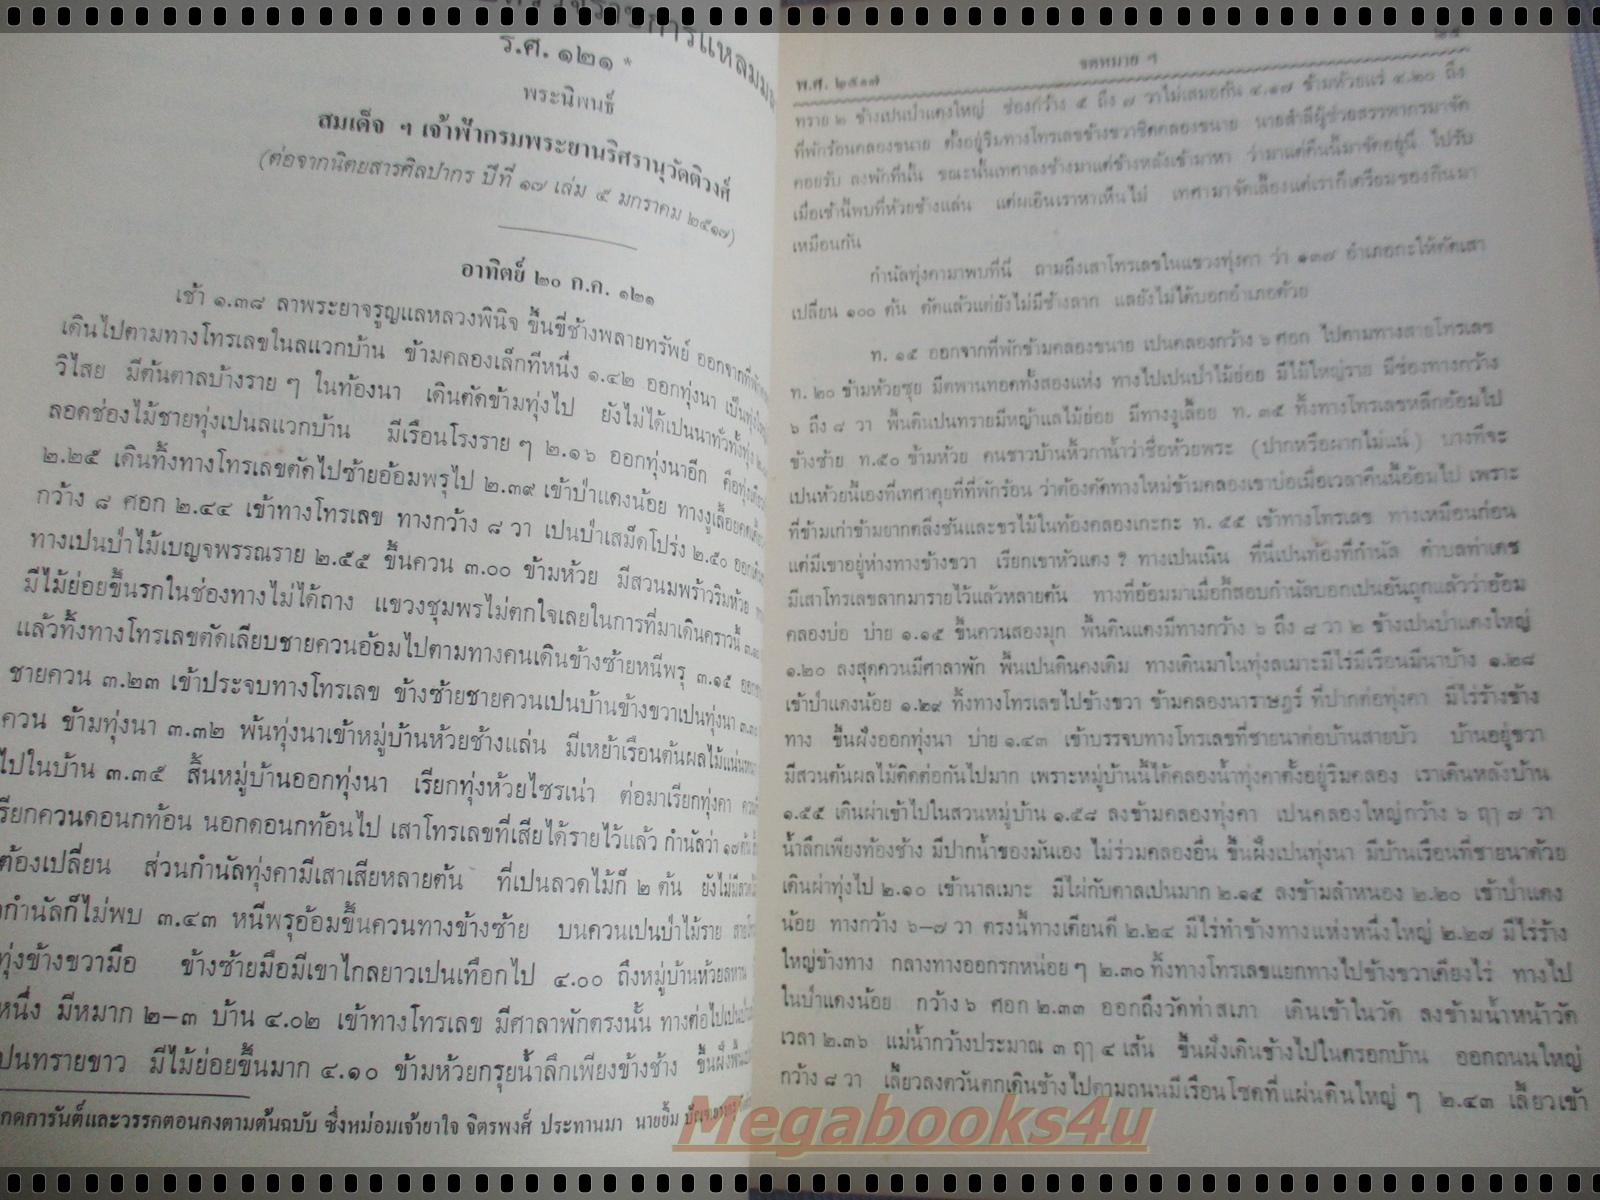 ร.ศ. ๑๒๑ *
พระนิพนธ์
สมเด็จ ฯ เจ้าฟ้ากรมพระยานริศรานุวัดติวงศ์
(ต่อจากนิตยสารศิลปากร ปีที่ ๑๗ เล่ม ๕ มกราคม ๒๕๑๗)
อาทิตย์ ๒๐ ก.ค. ๑๒๑
เช้า ๑.๓๘ ลาพระยาจรูญแลหลวงพินิจ ขึ้นขี่ช้างพลายทรัพย์ ออกจากที่พัก
เดินไปตามทางโทรเลขในลแวกบ้าน ข้ามคลองเล็กทีหนึ่ง ๑.๔๒ ออกทุ่งนา เป็นทุ่งใหญ่
วิไสย มีต้นตาลบ้างราย ๆ ในท้องนา เดินตัดข้ามทุ่งไป ยังไม่ได้เปนนาทั่วทั้งทุ่ง
ลอดช่องไม้ชายทุ่งเปนลแวกบ้าน มีเรือนโรงราย ๆ ๒.๑๖ ออกทุ่งนาอีก
๒.๒๕ เดินทิ้งทางโทรเลขตัดไปซ้ายอ้อมพรุไป ๒.๓๙ เข้าป่าแดงน้อย ทางงูเลื้อย
กว้าง ๘ ศอก ๒.๔๔ เข้าทางโทรเลข ทางกว้าง ๘ วา เปนป่าเสม็ดโปร่ง ๒.๕๐
ทางเปนป่าไม้เบญจพรรณราย ๒.๕๕ ขึ้นควน ๓.๐๐ ข้ามห้วย มีสวนมพร้าวริมห้วย
มีไม้ย่อยขึ้นรกในช่องทางไม่ได้ถาง แขวงชุมพรไม่ตกใจเลยในการที่มาเดินคราวนี้
แล้วทิ้งทางโทรเลขตัดเลียบชายควนอ้อมไปตามทางคนเดินข้างซ้ายหนีพรุ ๓.๑๕
ชายควน ๓.๒๓ เข้าประจบทางโทรเลข ข้างซ้ายชายควนเปนบ้านข้างขวาเปนทุ่งนา
ควน ข้ามทุ่งนา ๓.๓๒ พ้นทุ่งนาเข้าหมู่บ้านห้วยช้างแล่น มีเหย้าเรือนต้นผลไม้
ไปในบ้าน ๓.๓๕ สิ้นหมู่บ้านออกทุ่งนา เรียกทุ่งห้วยไซรเน่า ต่อมาเรียกทุ่งคา
เรียกควนดอนกท้อน นอกดอนกท้อนไป เสาโทรเลขที่เสียได้รายไว้แล้ว กำนัลว่า ๑๗ ต้น
ต้องเปลี่ยน ส่วนกำนัลทุ่งคามีเสาเสียหลายต้น ที่เปนลวดไม้ก็ ๒ ต้น
กำนัลก็ไม่พบ ๓.๔๓ หนีพรุอ้อมขึ้นควนทางข้างซ้าย บนควนเปนป่าไม้ราย
ทุ่งข้างขวามือ ข้างซ้ายมือมีเขาไกลยาวเปนเทือกไป ๔.๐๐ ถึงหมู่บ้านห้วยลหาน
หนึ่ง มีหมาก ๒–๓ บ้าน ๔.๐๒ เข้าทางโทรเลข มีศาลาพักตรงนั้น ทางต่อไป
ปนทรายขาว มีไม้ย่อยขึ้นมาก ๔.๑๐ ข้ามห้วยกรุยน้ำลึกเพียงข้างช้าง
กดการันต์และวรรคตอนคงตามต้นฉบับ ซึ่งหม่อมเจ้ายาใจ จิตรพงศ์ ประทานมา นายยิ้ม ปัณฑยางกูร
พ.ศ. ๒๕๑๗
จดหมาย ฯ
ทราย ๒ ข้างเปนป่าแดงใหญ่ ช่องกว้าง ๕ ถึง ๗ วาไม่เสมอกัน ๔.๑๗ ข้ามห้วยแร่ ๔.๒๐ ถึง
ที่พักร้อนคลองขนาย ตั้งอยู่ริมทางโทรเลขข้างขวาชิดคลองขนาย นายสำลีผู้ช่วยสรรพากรมาจัด
คอยรับ ลงพักที่นั้น ขณะนั้นเทศาลงช้างมาแต่ข้างหลังเข้ามาหา ว่ามาแต่คืนนี้มาจัดอยู่นี่ ไปรับ
เมื่อเช้านี้พบที่ห้วยช้างแล่น แต่ผเอินเราหาเห็นไม่ เทศามาจัดเลี้ยงแต่เราก็เตรียมของกินมา
เหมือนกัน
กำนัลทุ่งคามาพบที่นี่ ถามถึงเสาโทรเลขในแขวงทุ่งคา ว่า ๑๓๗ อำเภอกะให้ตัดเสา
เปลี่ยน ๑๐๐ ต้น ตัดแล้วแต่ยังไม่มีช้างลาก แลยังไม่ได้บอกอำเภอด้วย
ท. ๑๕ ออกจากที่พักข้ามคลองขนาย เปนคลองกว้าง ๖ ศอก ไปตามทางสายโทรเลข
ท. ๒๐ ข้ามห้วยซุย มีตพานทอดทั้งสองแห่ง ทางไปเปนป่าไม้ย่อย มีไม้ใหญ่ราย มีช่องทางกว้าง
๖ ถึง ๘ วา พื้นดินเปนทรายมีหญ้าแลไม้ย่อย มีทางงูเลื้อย ท. ๓๕ ทิ้งทางโทรเลขหลีกอ้อมไป
ข้างซ้าย ท.๕๐ ข้ามห้วย คนชาวบ้านหิ้วกาน้ำว่าชื่อห้วยพระ (ปากหรือผากไม่แน่) บางทีจะ
เปนห้วยนี้เองที่เทศาคุยที่ที่พักร้อน ว่าต้องตัดทางใหม่ข้ามคลองเขาบ่อเมื่อเวลาคืนนี้อ้อมไป เพราะ
ที่ข้ามเก่าข้ามยากตลิ่งชันและขรไม้ในท้องคลองเกะกะ ท. ๕๕ เข้าทางโทรเลข ทางเหมือนก่อน
แต่มีเขาอยู่ห่างทางข้างขวา เรียกเขาหัวแดง ? ทางเปนเนิน ที่นี่เปนท้องที่กำนัล ตำบลท่าเดช
มีเสาโทรเลขลากมารายไว้แล้วหลายต้น ทางที่อ้อมมาเมื่อกี้สอบกำนัลบอกเปนอันถูกแล้วว่าอ้อม
คลองบ่อ บ่าย ๑.๑๕ ขึ้นควนสองมุก พื้นดินแดงมีทางกว้าง ๖ ถึง ๘ วา ๒ ข้างเปนป่าแดงใหญ่
๑.๒๐ ลงสุดควนมีศาลาพัก พื้นเปนดินคงเดิม ทางเดินมาในทุ่งลเมาะมีไร่มีเรือนมีนาบ้าง ๑.๒๘
เข้าป่าแดงน้อย ๑.๒๙ ทิ้งทางโทรเลขไปข้างขวา ข้ามคลองนาราษฎร์ ที่ปากต่อทุ่งคา มีไร่ร้างข้าง
ทาง ขึ้นฝั่งออกทุ่งนา บ่าย ๑.๔๓ เข้าบรรจบทางโทรเลขที่ชายนาต่อบ้านสายบัว บ้านอยู่ขวา
มีสวนต้นผลไม้ติดต่อกันไปมาก เพราะหมู่บ้านนี้ได้คลองน้ำทุ่งคาตั้งอยู่ริมคลอง เราเดินหลังบ้าน
๑.๕๕ เดินผ่าเข้าไปในสวนหมู่บ้าน ๑.๕๘ ลงข้ามคลองทุ่งคา เปนคลองใหญ่กว้าง ๖ ฤา ๗ วา
น้ำลึกเพียงท้องช้าง มีปากน้ำของมันเอง ไม่ร่วมคลองอื่น ขึ้นฝั่งเปนทุ่งนา มีบ้านเรือนที่ชายนาด้วย
เดินผ่าทุ่งไป ๒.๑๐ เข้านาลเมาะ มีไผ่กับตาลเปนมาก ๒.๑๕ ลงข้ามลำหนอง ๒.๒๐ เข้าป่าแดง
น้อย ทางกว้าง ๖–๗ วา ตรงนี้ทางเตียนดี ๒.๒๔ มีไร่ทำข้างทางแห่งหนึ่งใหญ่ ๒.๒๗ มีไร่ร้าง
ใหญ่ข้างทาง กลางทางออกรกหน่อย ๆ ๒.๓๐ ทิ้งทางโทรเลขแยกทางไปข้างขวาเคียงไร่ ทางไป
ในป่าแดงน้อย กว้าง ๖ ศอก ๒.๓๓ ออกถึงวัดท่าสเภา เดินเข้าในวัด ลงข้ามน้ำหน้าวัด
เวลา ๒.๓๖ แม่น้ำกว้างประมาณ ๓ ฤา ๔ เส้น ขึ้นฝั่งเดินช้างไปในตรอกบ้าน ออกถนนใหญ่
กว้าง ๘ วา เลี้ยวลงตวันตกเดินช้างไปตามถนนมีเรือนโขดที่แผ่นดินใหญ่ ๆ ๒.๔๓ เลี้ยวเข้า
Megabooks4u